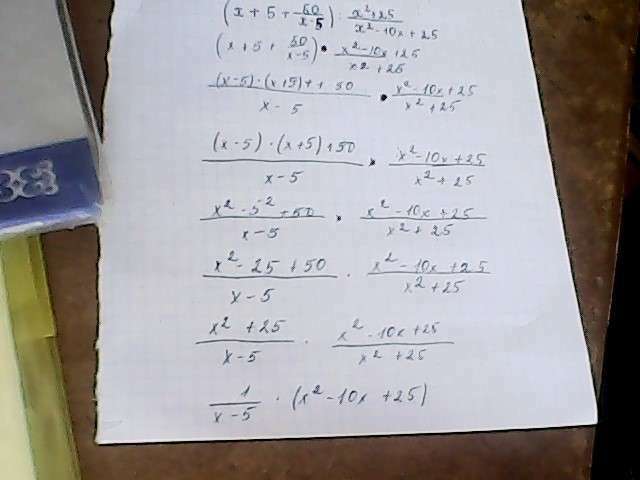 (x + 5 + 50/(x-5)) : (x²+25)/(x²-10x+25)
(x+5+ 50/(x-5)) • (x²-10x+25)/(x²+25)
((x-5)·(x+5)++50)/(x-5) • (x²-10x+25)/(x²+25)
((x-5)·(x+5)+50)/(x-5) • (x²-10x+25)/(x²+25)
(x²-5²+50)/(x-5) • (x²-10x+25)/(x²+25)
(x²-25+50)/(x-5) · (x²-10x+25)/(x²+25)
(x²+25)/(x-5) · (x²-10x+25)/(x²+25)
1/(x-5) · (x²-10x+25)